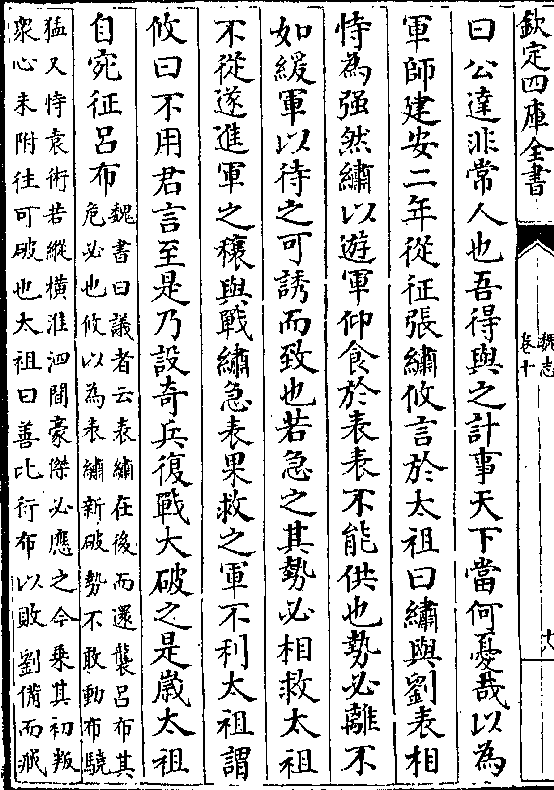 欽定四庫全書
魏志
卷十
十八
曰公達非常人也吾得與之計事天下當何憂哉以為
軍師建安二年從征張繡攸言於太祖曰繡與劉表相
恃為强然繡以遊軍仰食於表表不能供也勢必離不
如緩軍以待之可誘而致也若急之其勢必相救太祖
不從遂進軍之穰與戰繡急表果救之軍不利太祖謂
攸曰不用君言至是乃設奇兵復戰大破之是歲太祖
自宛征呂布
魏書曰議者云表繡在後而還襲呂布其
危必也攸以為表繡新破勢不敢動布驍
猛又恃袁術若縱橫淮泗間豪傑必應之今乘其初叛
衆心未附往可破也太祖曰善比行布以敗劉備而臧